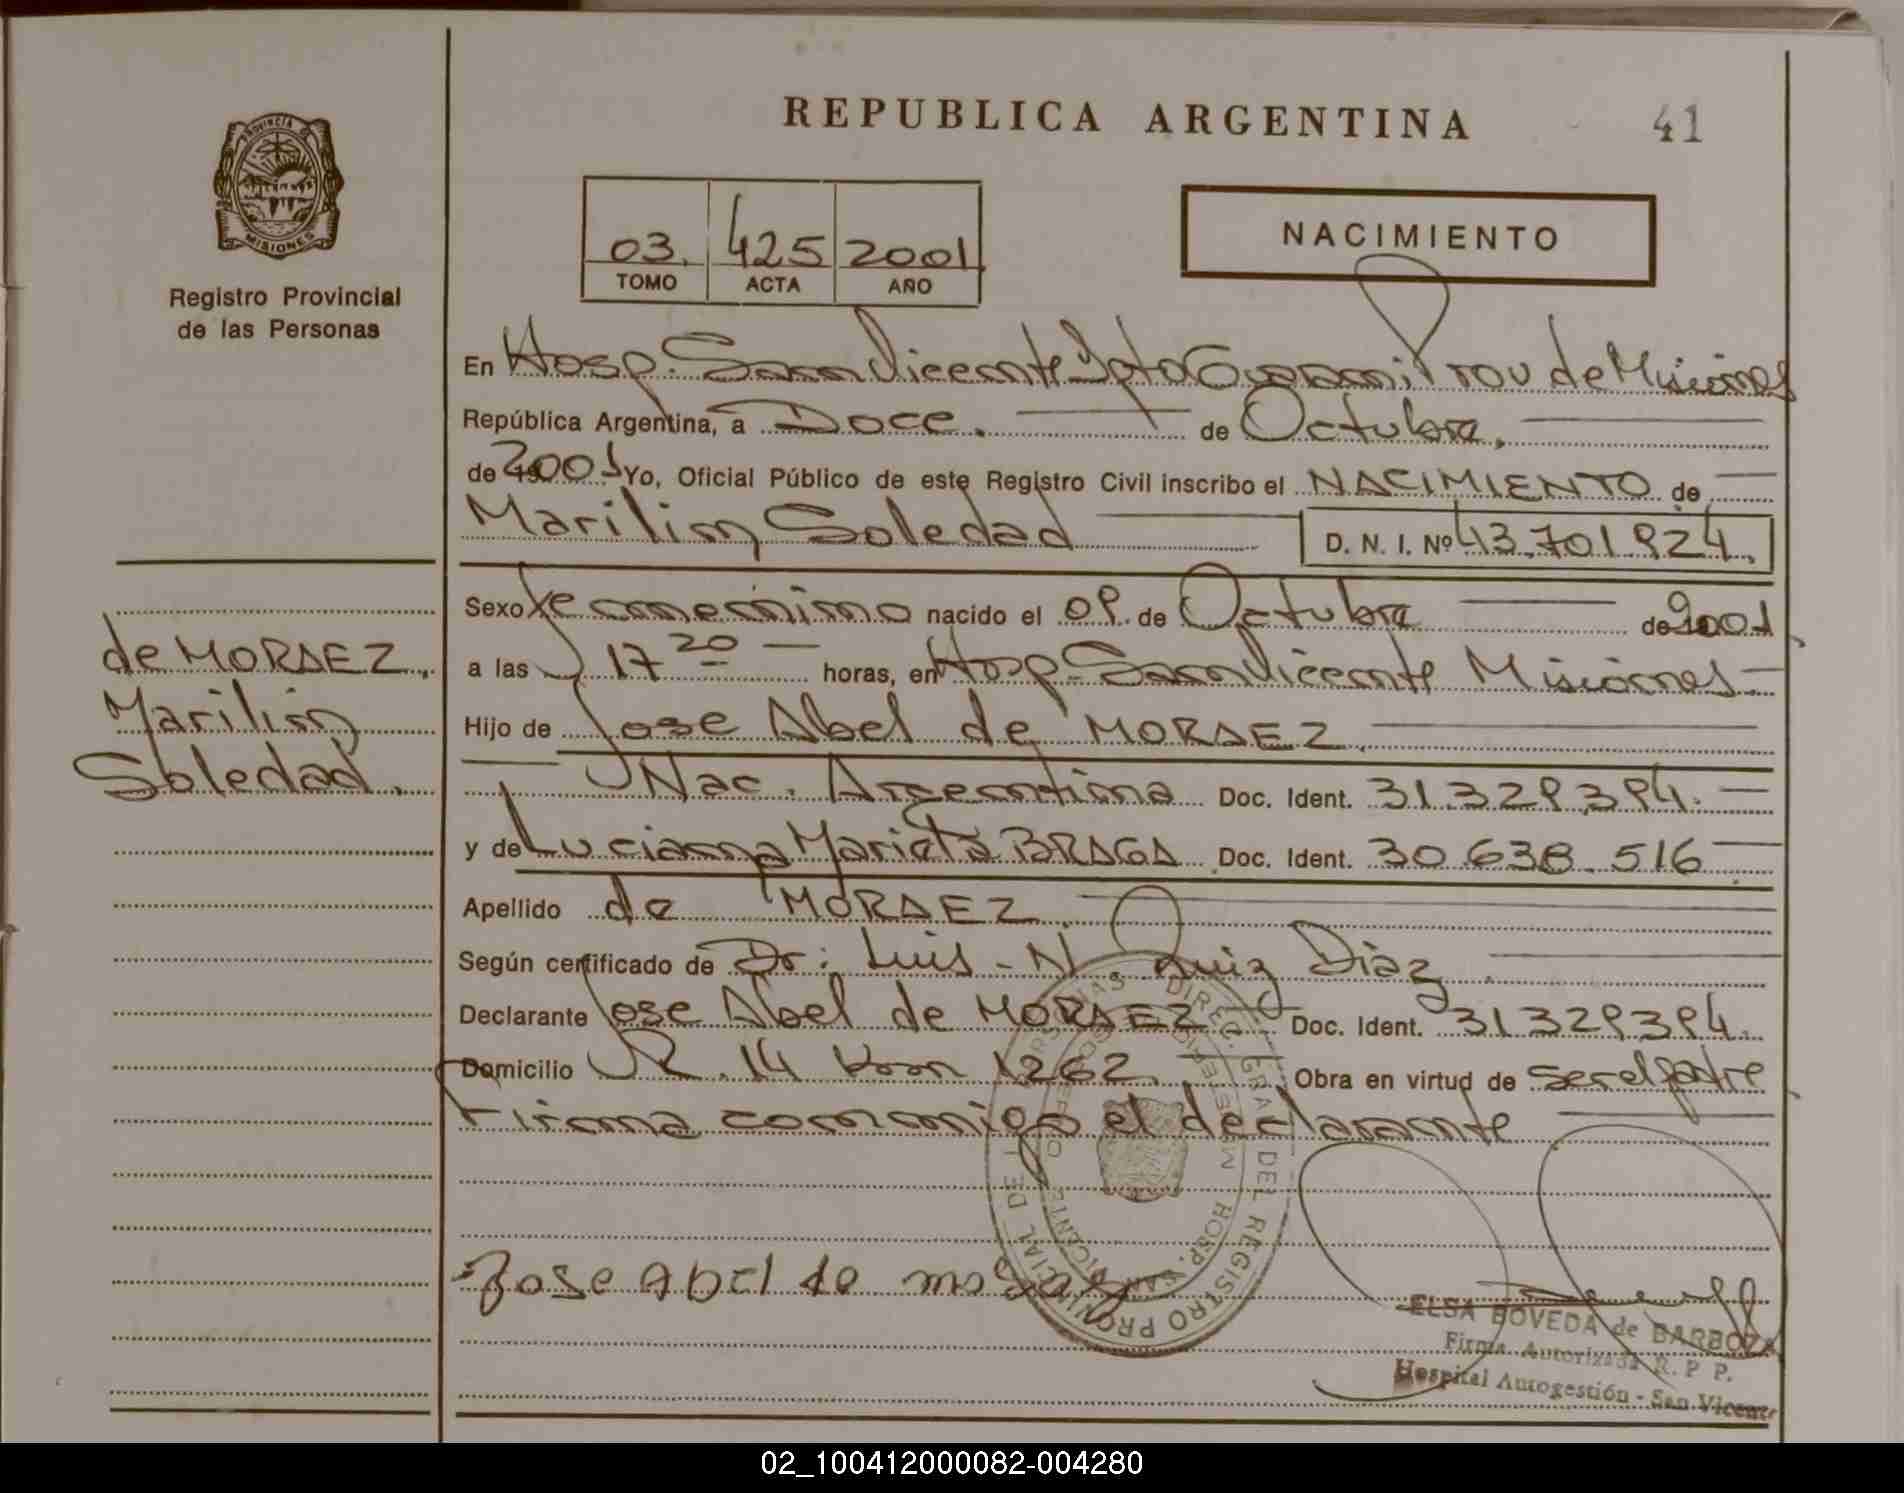 REPUBLICA ARGENTINA
41
PROVINCIA DE
MISIONES
Registro Provincial
de las Personas
03. 425 2001
TOMO ACTA AÑO
NACIMIENTO
En Hosp. San Vicente Dpto Guarani Prov de Misiones
República Argentina, a Doce. de Octubre,
de 2001 Yo, Oficial Público de este Registro Civil inscribo el NACIMIENTO de
Marilin Soledad D. N. I. Nº 43.701.924.
Sexo Femenino nacido el 09. de Octubre de 2001
a las 17 20 horas, en Hosp. San Vicente Misiones
Hijo de Jose Abel de MORAEZ
Nac. Argentina Doc. Ident. 31.329.394.
y de Luciana Marieta BRAGA Doc. Ident. 30.638.516
Apellido de MORAEZ.
Según certificado de Dr: Luis - N. Ruiz Diaz.
Declarante Jose Abel de MORAEZ Doc. Ident. 31329394.
Domicilio R. 14 Km 1262. Obra en virtud de ser el padre
Firma conmigo el declarante
de MORAEZ,
Marilin
Soledad.
Jose Abel de
DIREC. GRAL DEL REGISTRO PROVINCIAL DE
HOSP. SAN VICENTE
ELSA BOVEDA de BARBOZA
Firma Autorizada R. P. P.
Hospital Autogestión - San Vicente
02_100412000082-004280